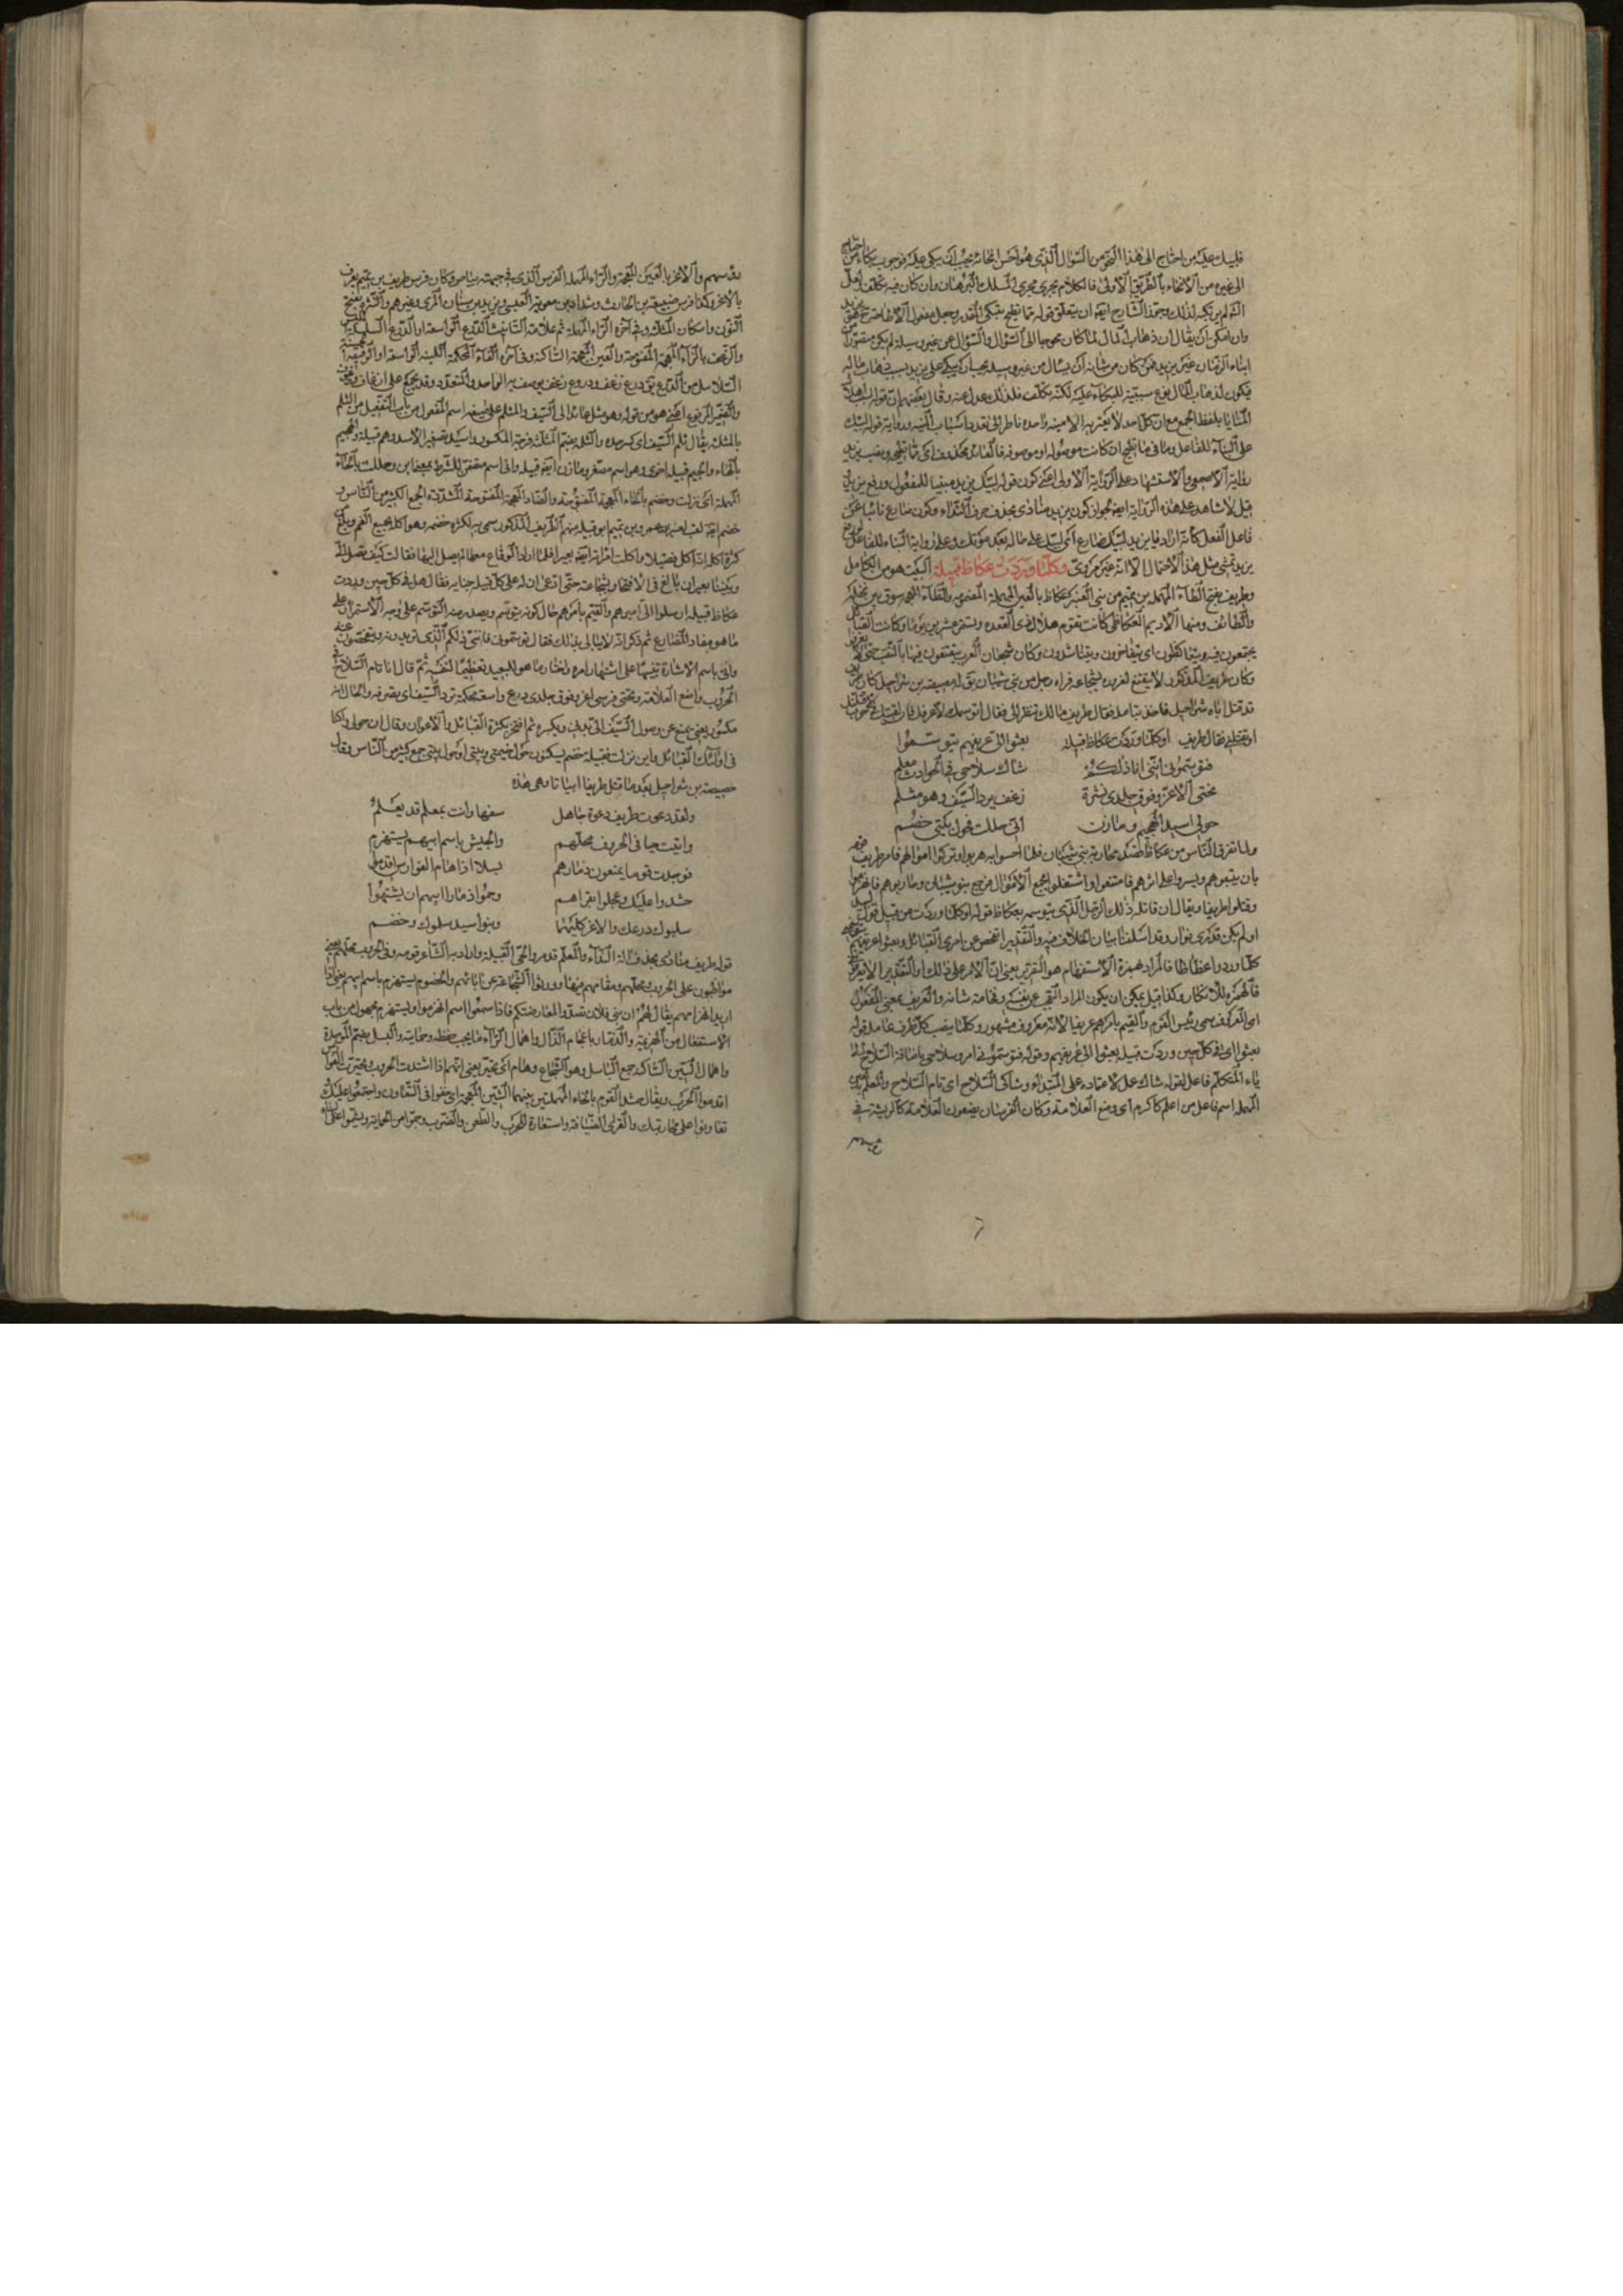 فليبك عليه من احتاج الى هذا النحو من السؤال الذى هو احسن انحائه يجب ان يبكى عليه فوجوب بكاء من احتاج
الى غيره من الانحاء بالطريق الاولى فالكلام مجرى مجرى المسلك البرهان وان كان فيه تكلف ولعل
وان امكن ان يقال ان ذهاب المال لما كان محوجا الى السؤال والسؤال عن غير وسيلة لم يكن مقصورا
ابناء الزمان غير يزيد فمن كان من شانه ان يسال من غير وسيلة يجب ان يبكى على يزيد بسبب ذهاب ماله
فيكون لذهاب المال نوع سببية للبكاء عليه لكنه تكلف فلذلك عدل عنه وقال بعضهم ان قوله
المنايا بلفظ الجمع مع ان كل احد لا يعتريه الا منية واحدة ناظر الى تعدد اسباب المنية ورواية قوله ليبك
على البناء للفاعل وما فى مما تطيح ان كانت موصولة او موصوفة فالعائد محذوف اى مما تطيحه ونصب يزيد
رواية الاصمعى والاستشهاد على الرواية الاولى اعنى كون قوله ليبك يزيد مبنيا للمفعول ورفع يزيد
قيل لا شاهد على هذه الرواية ايضا لجواز كون يزيد منادى بحذف حرف النداء وكون ضارع نائبا عن
فاعل الفعل كانه اراد يا يزيد ليبك ضارع اى ليبك على حاله بعد موتك وعلى رواية البناء للفاعل
يزيد تمشى مثل هذا الاحتمال الا انه غير مروى وكلما وردت عكاظ قبيلة البيت هو من الكامل
وطريف بفتح الطاء المهملة بن تميم من بنى العنبر عكاظ بالعين المهملة المضمومة والظاء المعجمة سوق بين نخلة
والطائف ومنها الاديم العكاظى كانت تقوم هلال ذى القعدة وتستمر عشرين يوما وكانت القبائل
يجتمعون فيه ويتعاكظون اى يتفاخرون ويتناشدون وكان شجعان العرب يتقنعون فيها بالنقب حتى لا
وكان طريف المذكور لا يتقنع لغروره لشجاعة فراه رجل من بنى شيبان يق له حصيصة بن شراحيل كان طريف
قد قتل اباه شراحيل فاخذ يتامله فقال طريف مالك تنظر الى فقال اتوسمك لاعرفك فان لقيتك
او تقتلنى فقال طريف اوكلما وردت عكاظ قبيلة بعثوا الى عريفهم يتوسموا
فتوسمونى اننى انا ذلكم شاك سلاحى فى الحوادث معلم
تحتى الاغر وفوق جلدى نثرة زغف يرد السيف وهو مثلم
حولى اسيد الهجيم ومازن انى حللت فحول بيتى خضم
ولما تفرق الناس من عكاظ محاربة بنى شيبان فلما احسوا به هربوا وتركوا اموالهم فامر طريف
بان يتبعوهم ويسيروا على اثرهم فامتنعوا واشتغلوا بجمع الاموال فرجع بنو شيبان وحاربوهم فانهزموا
وقتلوا طريفا ويقال ان قاتله ذلك الرجل الذى يتوسمه بعكاظ قوله اوكلما وردت من قبيل قوله
او لم يكن تدرى نوار وقد اسلفنا بيان الخلاف فيه والتقدير
كلما وردوا عكاظا فالمراد بهمزة الاستفهام هو التقرير يعنى ان الامر على ذلك او التقدير
فالهمزة للانكار وكذا قيل يمكن ان يكون المراد التعجب عن نفسه وفخامة شانه والعريف بمعنى المفعول
اى المعروف سمى رئيس القوم والقيم بامرهم عريفا لانه معروف مشهور وكلما بنصب كل ظرف عامله قوله
بعثوا اى فى كل حين وردت قبيلة بعثوا الى عريفهم وقوله فتوسمونى امر وسلاحى باضافة السلاح الى
ياء المتكلم فاعل لقوله شاك عمل لاعتماده على المبتداء وشاكى السلاح اى تام السلاح والمعلم بالعين
المهملة اسم فاعل من اعلم كاكرم اى وضع العلامة وكان الفرسان يضعون العلامة كالريشة فى
والاغر بالغين المعجمة والراء المهملة الفرس الذى فى جبهته بياض وكان فرس طريف بن تميم يعرف
بالاغر وكذا فرس ضبيعة بن الحارث وشداد بن معوية العبسى ويزيد بن سنان المرى وغيرهم والنثرة بفتح
النون واسكان المثلثة وفى آخره الراء المهملة ثم علامة التانيث الدرع الواسعة او الدرع السلسة
والزغف بالزاء المعجمة المفتوحة والغين المعجمة الساكنة وفى آخره الفاء المحكمة اللينة الواسعة او الرقيقة
السلاسل من الدرع يق درع زغف ودروع زغف يوصف به الواحد والمتعدد وقد يجمع على ازغاف
والضمير المرفوع اعنى هو من قوله وهو مثلم عائد الى السيف والمثلم على صيغة اسم المفعول من باب التفعيل من الثلم
بالمثلثة يقال ثلم السيف اى كسر حده والثلمة بضم المثلثة فرجة المكسور واسيد تصغير الاسد وهم قبيلة
بالهاء والجيم قبيلة اخرى وهو اسم مصغر ومازن ايضا قبيلة وانى اسم متضمن للشرط بمعنى اين وحللت بالحاء
المهملة اى نزلت وخضم بالخاء المعجمة المفتوحة والضاد المعجمة المفتوحة المشددة الجمع الكثير من الناس و
خضم ايضا لقب لعنبر بن عمرو بن تميم ابو قبيلة منهم الطريف المذكور سمى به لكثرة خضمه وهو اكل بجميع الفم
كثرة اكله انه اكل فصيلا واكلت امراته ايضا بعيرا فلما اراد الوقاع معها لم يصل اليها فقالت كيف تصل الى
وبيننا بعيران بالغ فى الافتخار بشجاعته حتى ادعى ان له على كل قبيلة جناية فقال هل فى كل حين وردت
عكاظ قبيلة ارسلوا الى اسيرهم والقيم بامرهم حال كونه يتوسم ويصدر منه التوسم على وجه الاستمرار على
ما هو مفاد المضارع ثم ذكر انه لا يبالى بذلك فقال توسمونى فاننى ذلكم الذى تريدونه وتفحصون عنه
واتى باسم الاشارة تنبيها على اشتهار امره واختار ما هو للبعيد تعظيما لنفسه ثم قال انا تام السلاح فى
الحروب واضع العلامة وتحتى فرسى اغر وفوق جلدى درع واسعة محكمة ترد السيف
مكسور يعنى يمنع عن وصول السيف الى بدنى ويكسره ثم افتخر بكثرة القبائل والاعوان وقال ان حولى
فى اولئك القبائل واين نزلت فقبيلة خضم يسكنون حول خيمتى وبيتى او حول بيتى جمع كثير من الناس وقال
حصيصة بن شراحيل بعد ما قتل طريفا ابياتا وهى هذه
ولقد دعوت طريف دعوة جاهل سفها وانت بمعلم قد يعلم
واتيت حيا فى الحروف محلهم والجيش باسم ابيهم يستهزم
فوجدت قوما يمنعون ذمارهم بسلا اذا هام الفوارس اقدموا
حشدوا عليك وعجلوا بقراهم وحموا ذمار ابيهم ان يشتموا
سلبوك درعك والاغر كليهما وبنو اسيد سلموك وخضم
قوله طريف منادى بحذف الة النداء والمعلم قد مر والحى القبيلة واراد به الشاعر قومه وفى الحروب محلهم يعنى
مواظبون على الحروب محلهم ومقامهم فيها وورثوا الشجاعة عن ابائهم والخصوم يستهزم باسم ابيهم يعنى اذا
اريد انهزامهم يقال لهم ان بنى فلان تصدوا لمعارضتكم فاذا سمعوا اسم انهزموا ويستهزم مجهول من باب
الاستفعال من الهزيمة والذمار باعجام الذال واهمال الراء ما يجب حفظه وحمايته والبسل بضم الموحدة
واهمال السين الساكنة جمع الباسل وهو الشجاع وهام اى تحير يعنى انهم اذا اشتدت الحروب وتحيرت الفوارس
اقدموا الحرب ويقال حشد القوم بالحاء المهملة بينهما الشين المعجمة اى خفوا فى التعاون واجتمعوا عليك
تعاونوا على محاربتك والقرى الضيافة واستعارة للحرب والطعن والضرب وحموا من الحماية